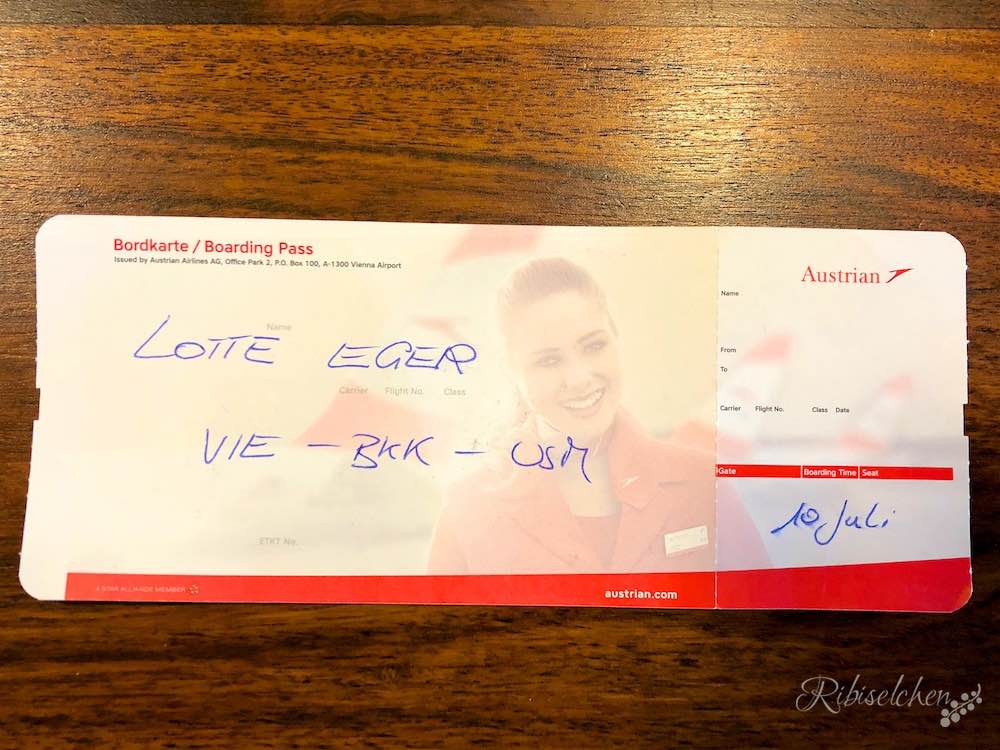 Bordkarte / Boarding Pass
Issued by Austrian Airlines AG, Office Park 2, P.O. Box 100, A-1300 Vienna Airport
Name
LOTTE EGER
Carrier Flight No. Class
VIE - BKK - USM
ETKT No.
A STAR ALLIANCE MEMBER
austrian.com
Austrian
Name
From
To
Carrier Flight No. Class Date
Gate Boarding Time Seat
10. Juli
Ribiselchen